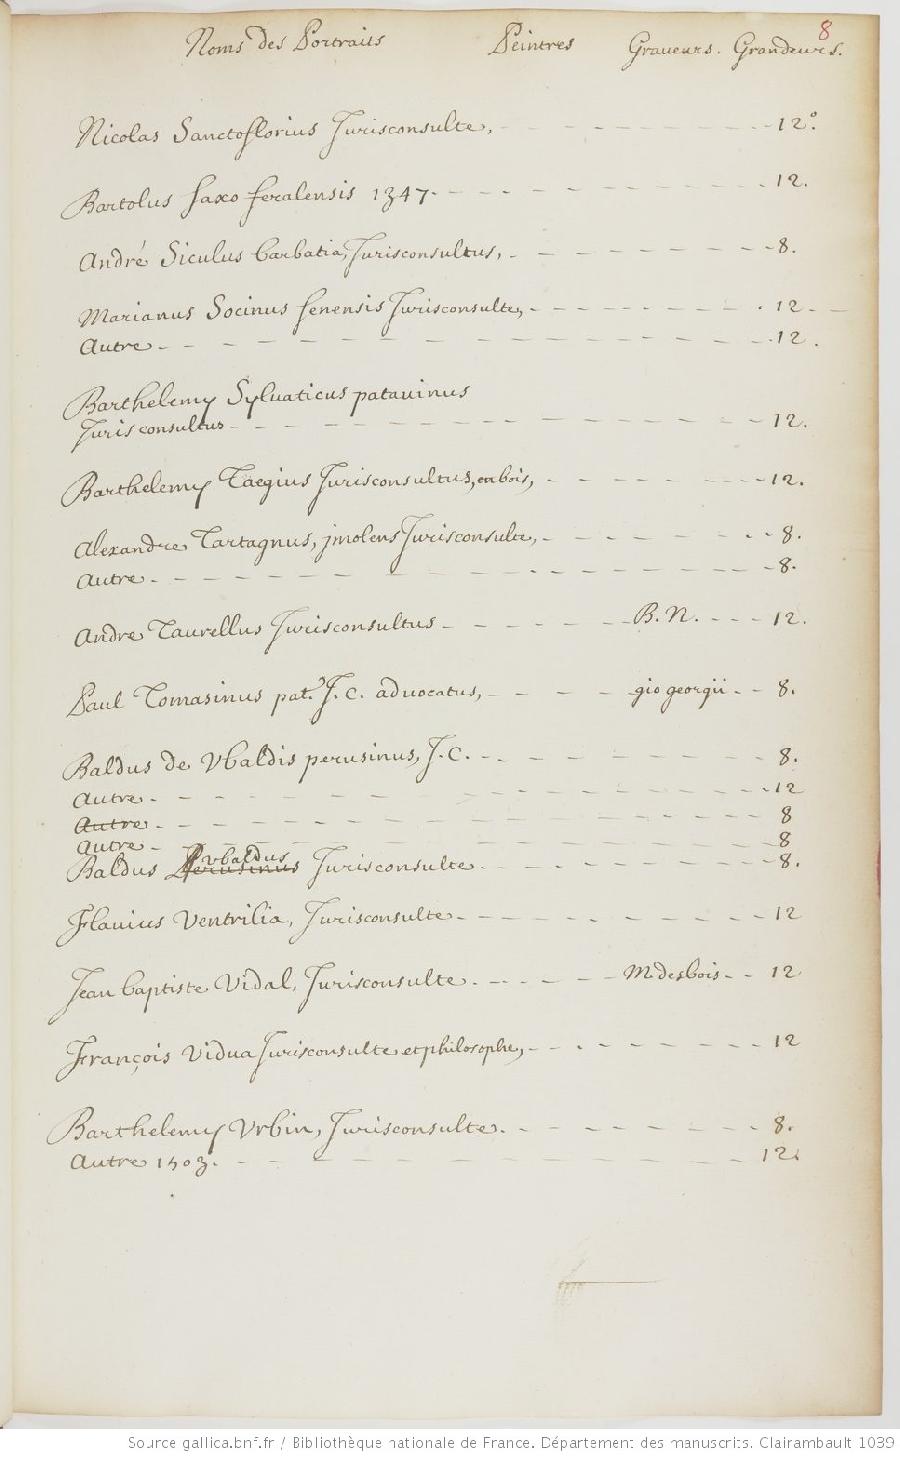 8
Noms des Portraits Peintres Graveurs. Grandeurs.
Nicolas Sanctoflorius Jurisconsulte, 12.°
Bartolus saxo feralensis 1347. 12.
André Siculus barbatia, Jurisconsultus, 8.
Marianus Socinus senensis Jurisconsulte, 12
Autre 12.
Barthelemy Sylvaticus patavinus
Jurisconsultus 12.
Barthelemy Taegius Jurisconsultus, en bois, 12.
Alexandre Tartagnus, jmolens Jurisconsulte, 8.
Autre 8.
Andre Taurellus Jurisconsultus B. N. 12.
Paul Tomasinus pat.s J. C. advocatus, gio georgii 8.
Baldus de Vbaldis perusinus, J. C. 8.
Autre 12
Autre 8
Autre 8
Baldus Perusinus vbaldus Jurisconsulte 8.
Flavius Ventrilia, Jurisconsulte 12
Jean baptiste Vidal, Jurisconsulte M. desbois 12
François Vidua Jurisconsulte et philosophe, 12
Barthelemy Vrbin, Jurisconsulte. 8.
Autre 1503. 12.
Source gallica.bnf.fr / Bibliothèque nationale de France. Département des manuscrits. Clairambault 1039